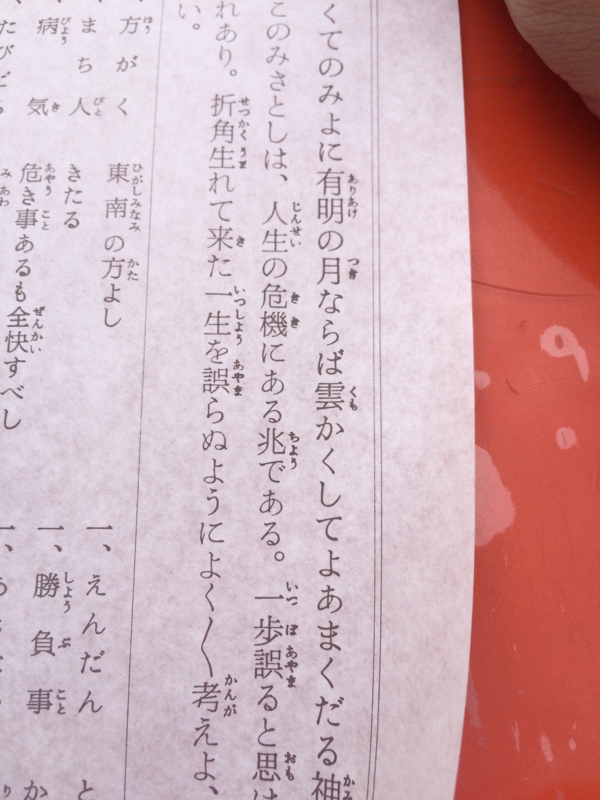 くてのみよに有明の月ならば雲かくしてよあまくだる神
このみさとしは、人生の危機にある兆である。一歩誤ると思は
れあり。折角生れて来た一生を誤らぬようによく〱考えよ、
い。
方がく
東南の方よし
一、えんだん
まち人
きたる
一、勝負事
病気
危き事あるも全快すべし